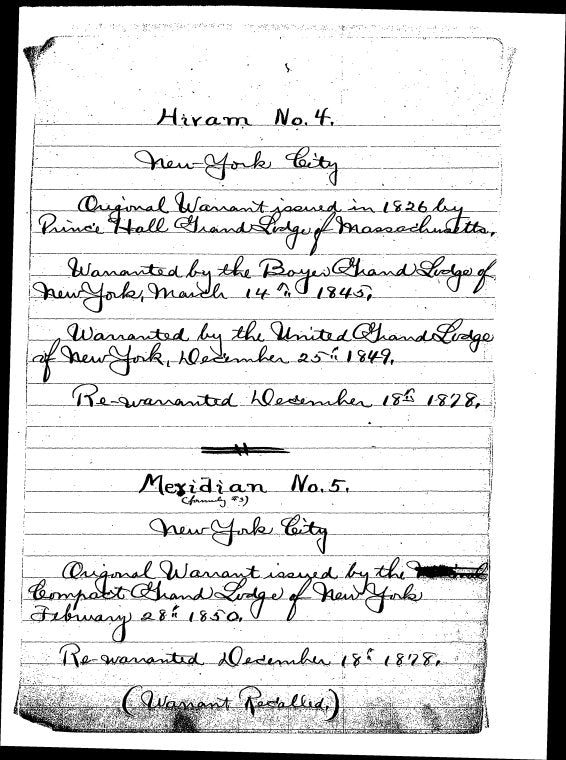 Hiram No. 4.
New York City
Origonal Warrant issued in 1826 by
Prince Hall Grand Lodge of Massachusetts.
Warranted by the Boyer Grand Lodge of
New York, March 14th 1845.
Warranted by the United Grand Lodge
of New York, December 25th 1849.
Re-warranted December 18th 1878.
Meridian No. 5.
(formerly #3)
New York City
Origonal Warrant issued by the
Compact Grand Lodge of New York
February 28th 1850.
Re-warranted December 18th 1878.
(Warrant Recalled.)